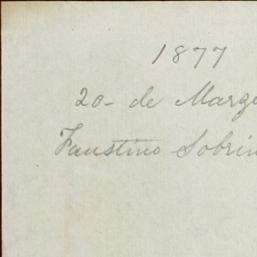 1877
20- de Marz
Faustino Sobrin